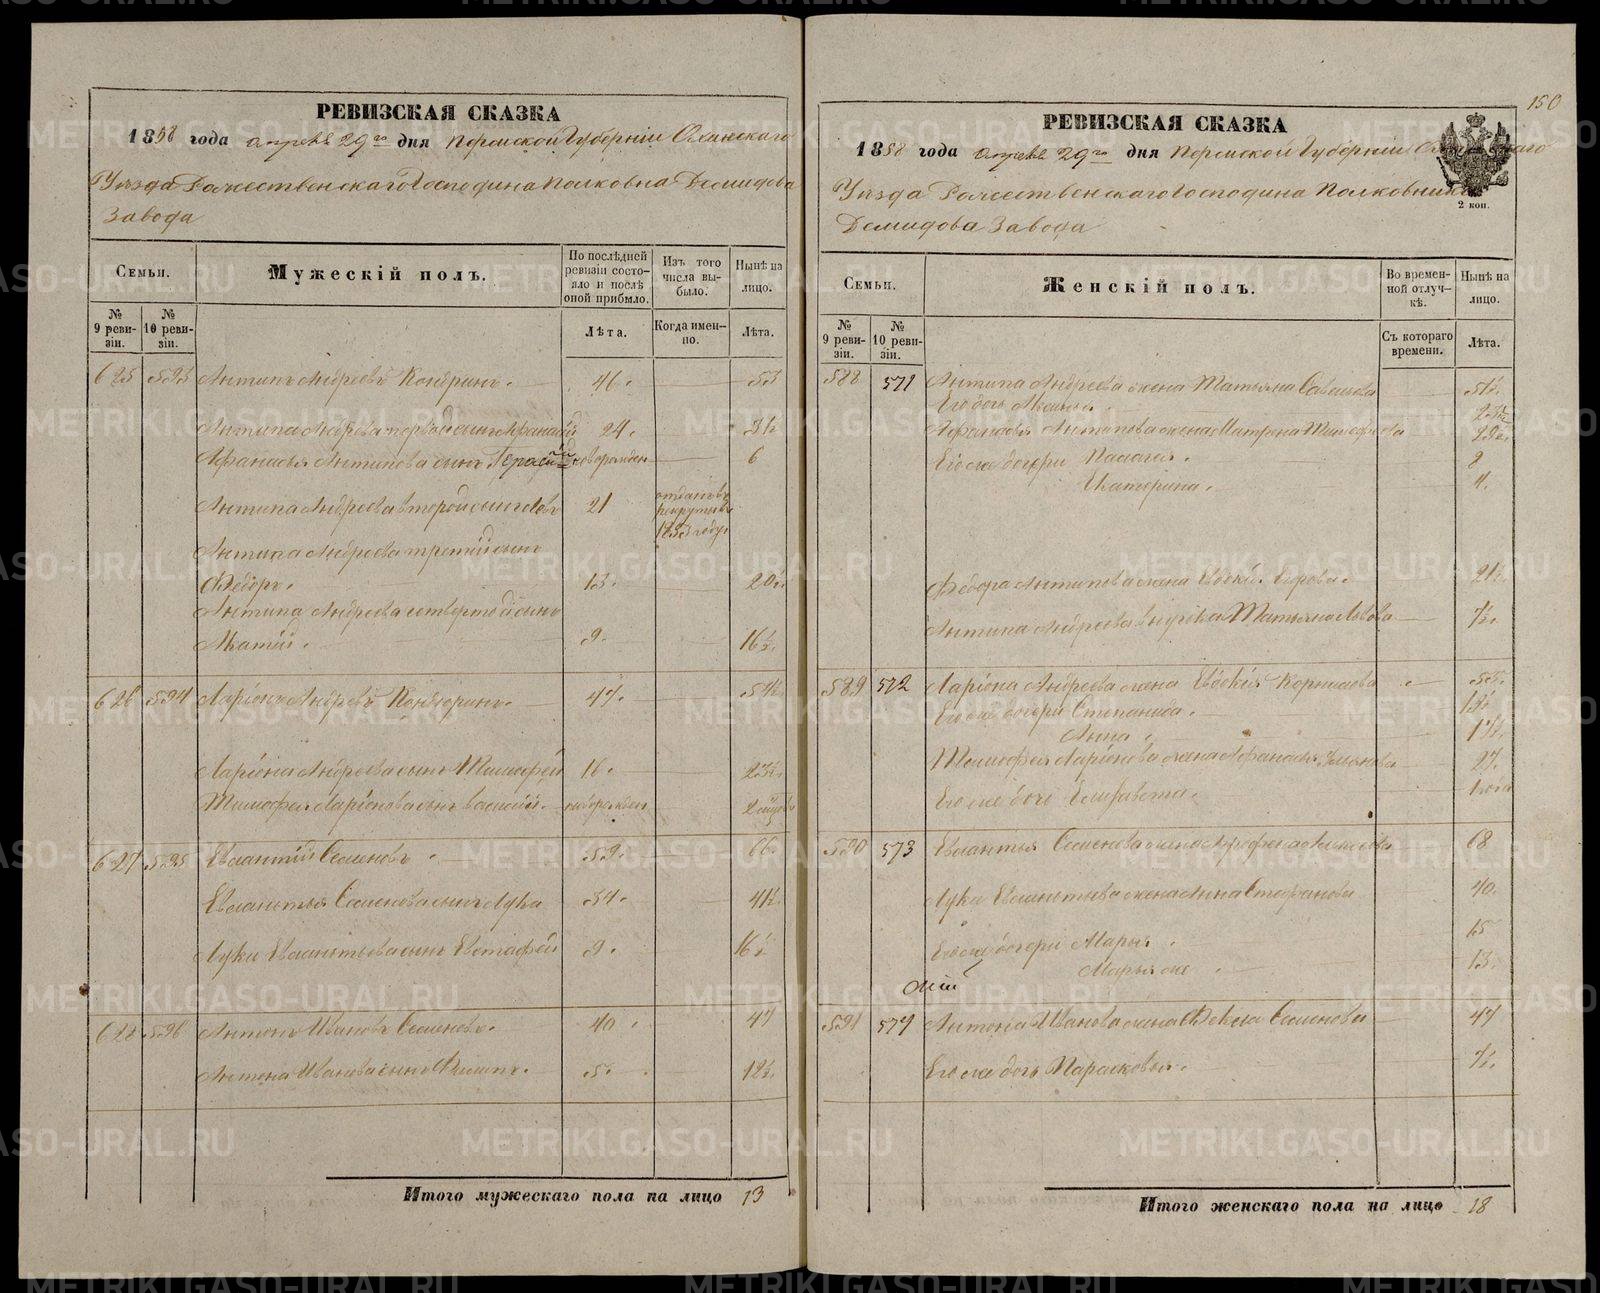 150
РЕВИЗСКАЯ СКАЗКА
1858 года апреля 29го дня Пермской Губерніи Оханскаго
Уѣзда Рожественскаго Господина Полковна Демидова
Завода
Семьи.
Мужескій полъ.
По послѣдней ревизіи состояло и послѣ оной прибыло.
Изъ того числа выбыло.
Нынѣ на лицо.
№ 9 ревизіи.
№ 10 ревизіи.
Лѣта.
Когда именно.
Лѣта.
625 593 Антипъ Андреевъ Кондринъ. 46. 53
Антипа Андреева первой сынъ Афанасій 24. 31½
Афанасья Антипова сынъ Герасим новорожден 6
Антипа Андреева второй сынъ Левъ 21 отданъ въ рекруты въ 1853 году
Антипа Андреева третій сынъ
Федоръ. 13. 20½
Антипа Андреева четвертой сынъ
9. 16½
626 594 Ларіонъ Андреевъ Кондюринъ. 47. 54½
Ларіона Андреева сынъ Тимофей 16. 23½
Тимофея Ларіонова сынъ Василій. новорожден 2 мѣсяцовъ
627 595 Евлантій Семеновъ 59. 66½
Евлантья Семенова сынъ Лука 34. 41½
Луки Евлантьева сынъ Евстафей 9. 16½
628 596 Антонъ Ивановъ Семеновъ. 40. 47
Антона Иванова сынъ Филипъ. 5. 12½
Итого мужескаго пола на лицо 13
РЕВИЗСКАЯ СКАЗКА
1858 года апреля 29го дня Пермской Губерніи Оханскаго
Уѣзда Рожественскаго Господина Полковника
Демидова Завода
2 коп.
Семьи.
Женскій полъ.
Во временной отлучкѣ.
Нынѣ на лицо.
№ 9 ревизіи.
№ 10 ревизіи.
Съ котораго времени.
Лѣта.
588 571 Антипа Андреева жена Татьяна Савельева 51½
Его дочь
Афанасья Антипова жена Матрена Тимофеева
Его же дочери Палагея. 8
Катерина. 4.
Федора Антипова жена Евдокія Егорова. 21½
Антипа Андреева внучка Татьяна Львова ½.
589 572 Ларіона Андреева жена Евдокія Корнилова 55.
Его же дочери Степанида.
Анна.
Тимофея Ларіонова жена Афанасья 27.
Его же дочь Елизавета.
590 573 Евлантья Семенова жена 68
Луки Евлантьева жена Анна Стефанова 40.
Его же дочери Марья 15
Марья же 13.
591 574 Антона Иванова жена Фекла Семенова 47
Его же дочь Парасковья. ½.
Итого женскаго пола на лицо 18
METRIKI.GASO-URAL.RU